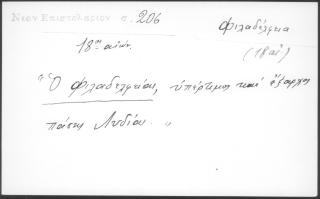 Νεον Επιστολαριον σ. 206
Φιλαδέλφεια
18ος αἰών.
(18 αἰ)
"Ὁ Φιλαδελφείας, ὑπέρτιμος καὶ ἔξαρχος
πάσης Λυδίας. "